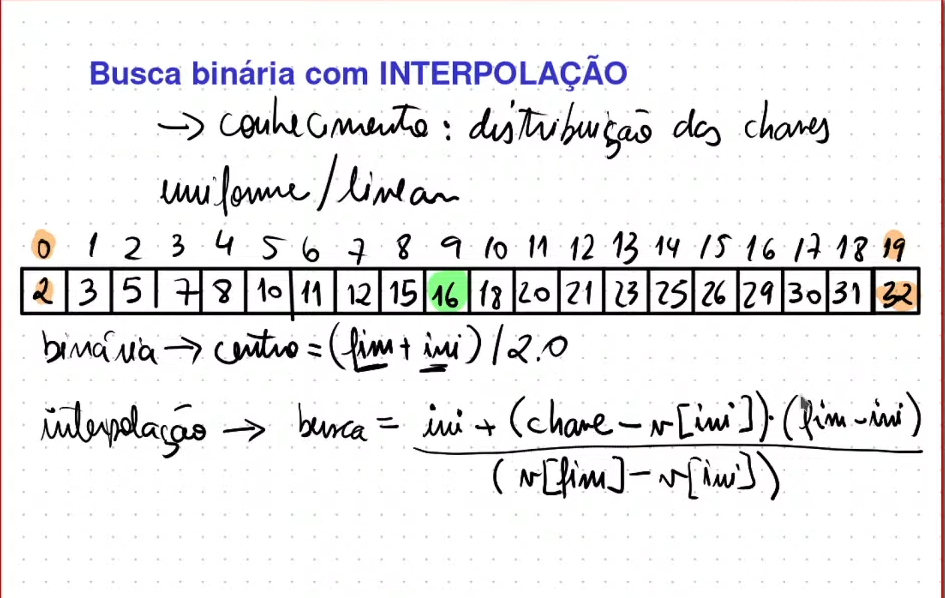 Busca binária com INTERPOLAÇÃO
→ conhecimento: distribuição das chaves
uniforme/linear
0 1 2 3 4 5 6 7 8 9 10 11 12 13 14 15 16 17 18 19
2 3 5 7 8 10 11 12 15 16 18 20 21 23 25 26 29 30 31 32
binária → centro = (fim + ini) / 2.0
interpolação → busca = ini + (chave - v[ini]) · (fim - ini)
(v[fim] - v[ini])